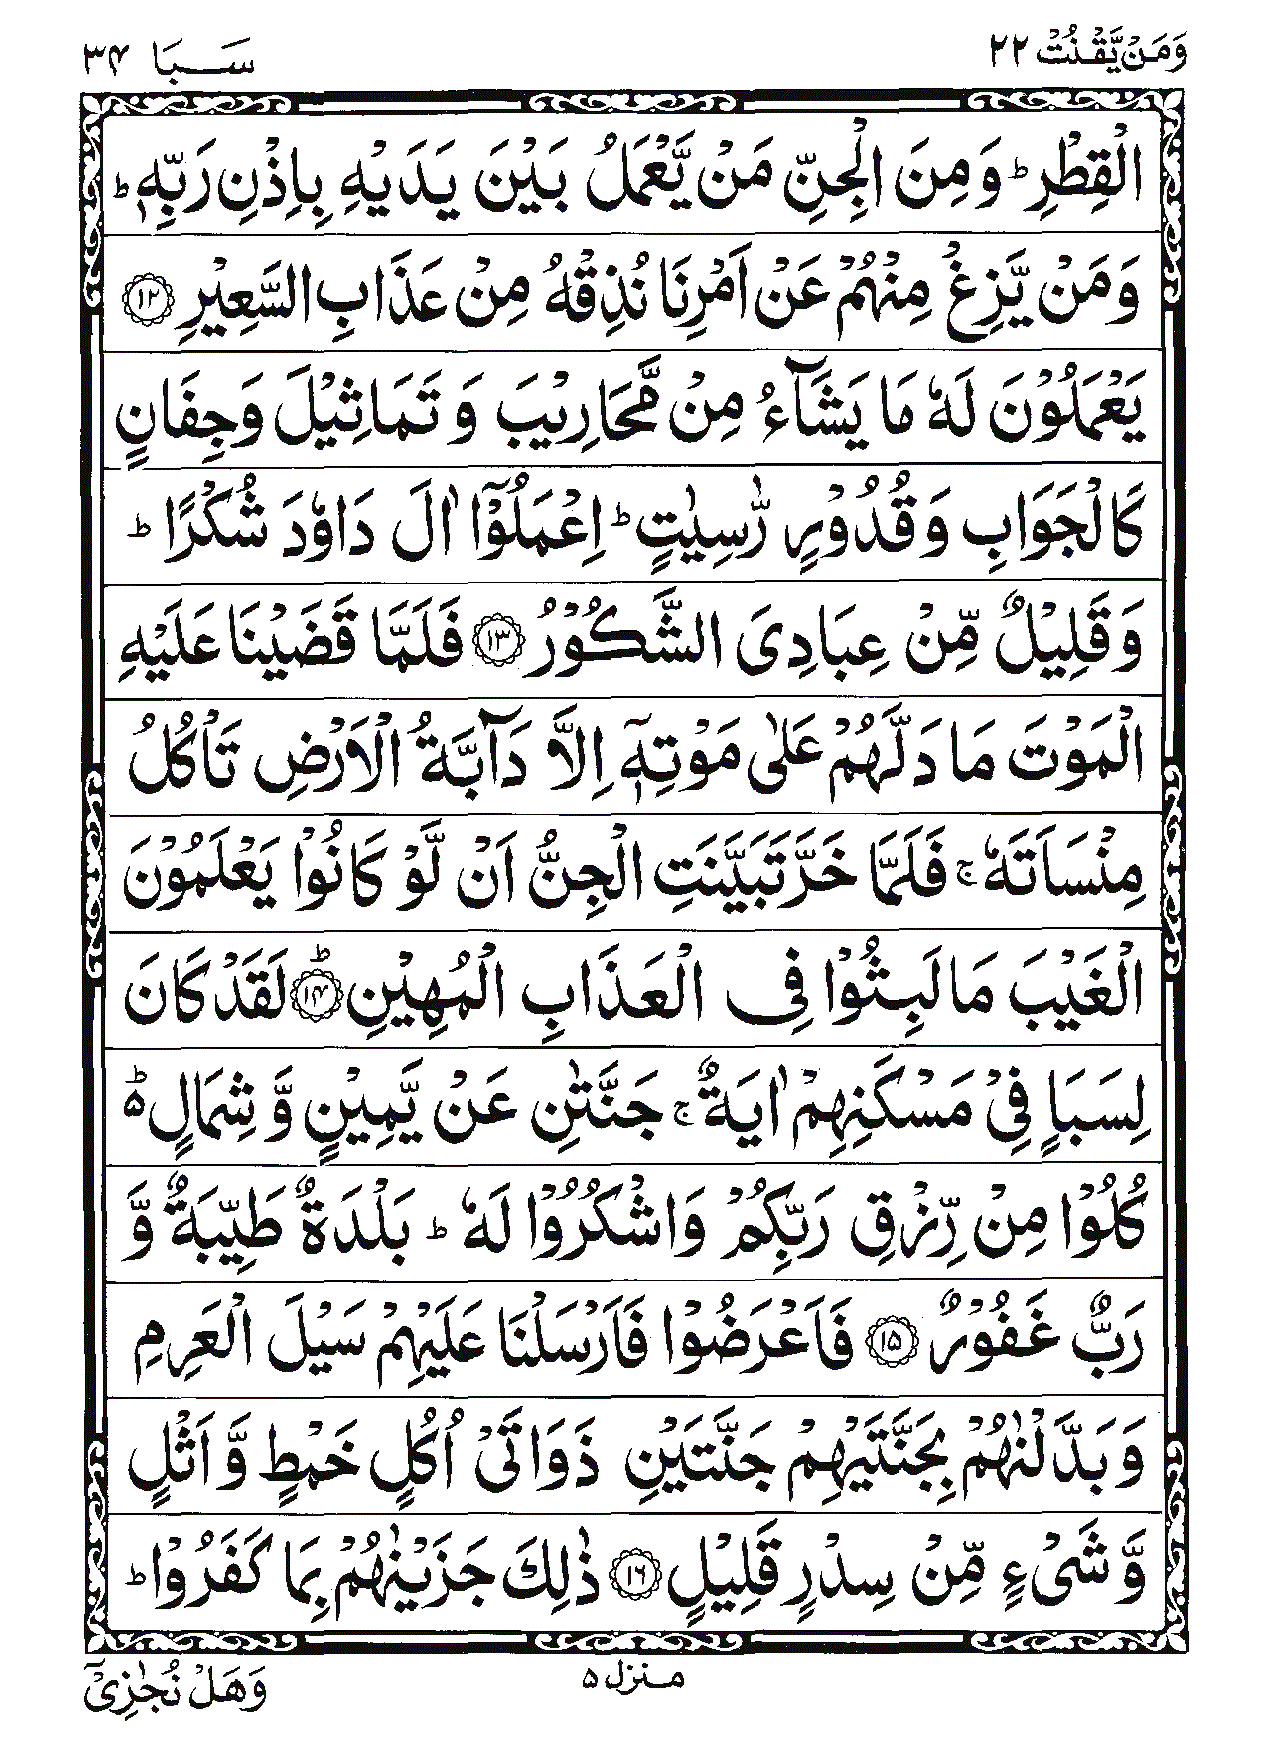 وَمَنۡ يَّقۡنُتۡ ٢٢
سَـبَا ٣۴
الۡقِطۡرِ ؕ وَمِنَ الۡجِنِّ مَنۡ يَّعۡمَلُ بَيۡنَ يَدَيۡهِ بِاِذۡنِ رَبِّهٖ ؕ
وَمَنۡ يَّزِغۡ مِنۡهُمۡ عَنۡ اَمۡرِنَا نُذِقۡهُ مِنۡ عَذَابِ السَّعِيۡرِ ﴿١٢﴾
يَعۡمَلُوۡنَ لَهٗ مَا يَشَآءُ مِنۡ مَّحَارِيۡبَ وَ تَمَاثِيۡلَ وَجِفَانٍ
كَالۡجَوَابِ وَقُدُوۡرٍ رّٰسِيٰتٍ ؕ اِعۡمَلُوۡۤا اٰلَ دَاوٗدَ شُكۡرًا ؕ
وَقَلِيۡلٌ مِّنۡ عِبَادِىَ الشَّكُوۡرُ ﴿١٣﴾ فَلَمَّا قَضَيۡنَا عَلَيۡهِ
الۡمَوۡتَ مَا دَلَّهُمۡ عَلٰى مَوۡتِهٖۤ اِلَّا دَآبَّةُ الۡاَرۡضِ تَاۡكُلُ
مِنۡسَاَتَهٗ ۚ فَلَمَّا خَرَّ تَبَيَّنَتِ الۡجِنُّ اَنۡ لَّوۡ كَانُوۡا يَعۡلَمُوۡنَ
الۡغَيۡبَ مَا لَبِثُوۡا فِى الۡعَذَابِ الۡمُهِيۡنِ ؕ﴿١۴﴾ لَقَدۡ كَانَ
لِسَبَاٍ فِىۡ مَسۡكَنِهِمۡ اٰيَةٌ ۚ جَنَّتٰنِ عَنۡ يَّمِيۡنٍ وَّ شِمَالٍ ۬ؕ
كُلُوۡا مِنۡ رِّزۡقِ رَبِّكُمۡ وَاشۡكُرُوۡا لَهٗ ؕ بَلۡدَةٌ طَيِّبَةٌ وَّ
رَبٌّ غَفُوۡرٌ ﴿١۵﴾ فَاَعۡرَضُوۡا فَاَرۡسَلۡنَا عَلَيۡهِمۡ سَيۡلَ الۡعَرِمِ
وَبَدَّلۡنٰهُمۡ بِجَنَّتَيۡهِمۡ جَنَّتَيۡنِ ذَوَاتَىۡ اُكُلٍ خَمۡطٍ وَّاَثۡلٍ
وَّشَىۡءٍ مِّنۡ سِدۡرٍ قَلِيۡلٍ ﴿١٦﴾ ذٰلِكَ جَزَيۡنٰهُمۡ بِمَا كَفَرُوۡا ؕ
منزل ۵
وَهَلۡ نُجٰزِىۡۤ